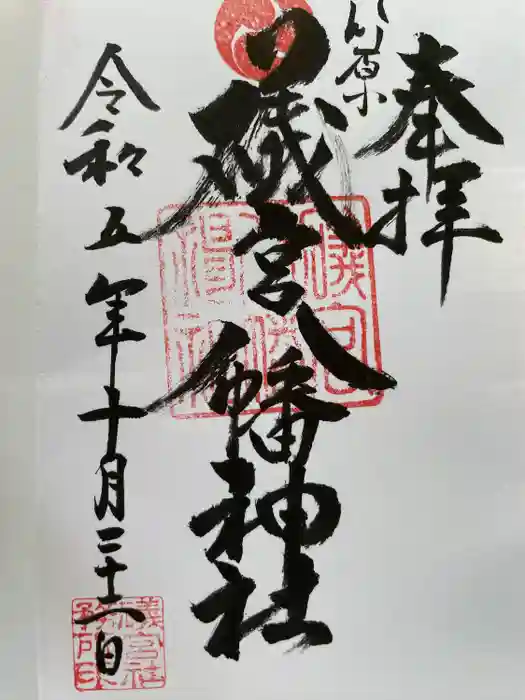 奉拝
竹原
磯宮八幡神社
令和五年十月二十二日